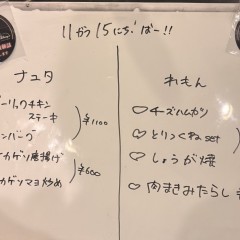 11がつ15にち!ばー!!
ナユタ
ーリックチキン
ステーキ
ンバーグ
¥1100
カゲソ唐揚げ
カゲソマヨ炒め
¥600
れもん
♡チーズハムカツ
♡とりつくねset
♡しょうが焼
♡肉まきみたらし